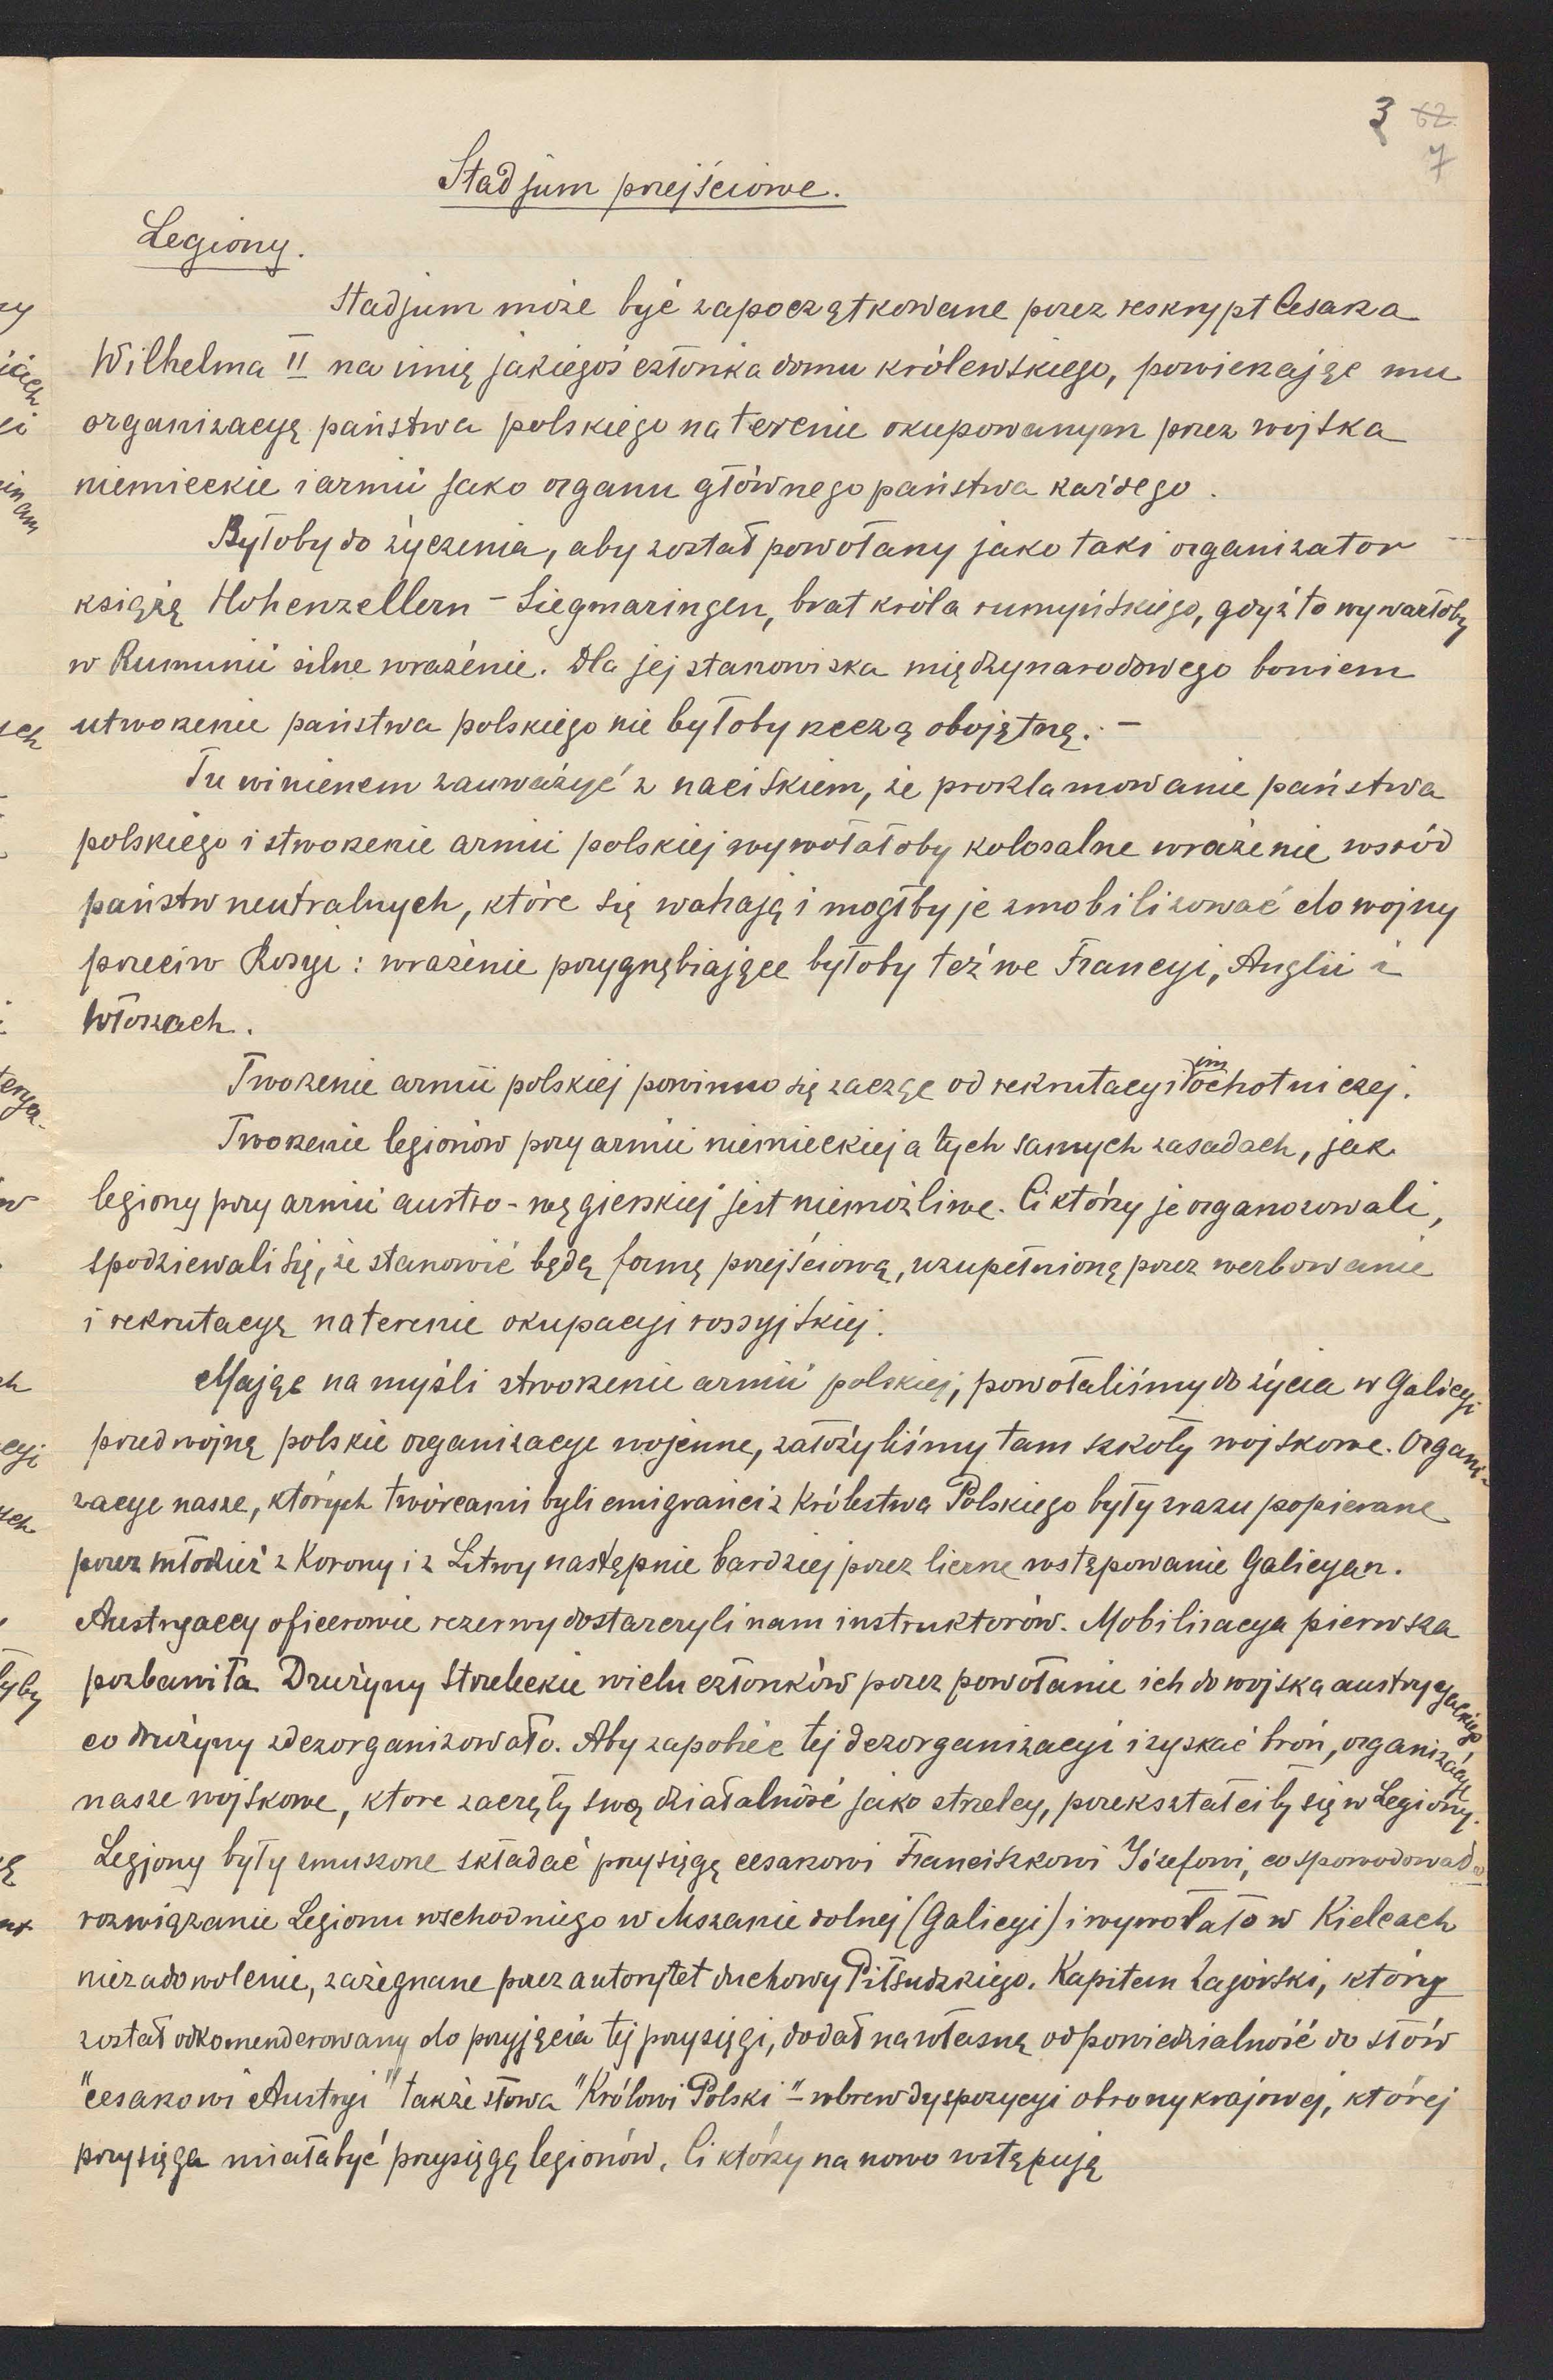 3 62
7
Stadjum przejściowe.
Legiony.
Stadjum może być zapoczątkowane przez reskrypt Cesarza
Wilhelma II na imię jakiegoś członka domu królewskiego, powierzając mu
organizacyę państwa polskiego na terenie okupowanym przez wojska
niemieckie i armii jako organu głównego państwa każdego.
Byłoby do życzenia, aby został powołany jako taki organizator
książę Hohenzellern - Siegmaringen, brat króla rumyńskiego, gdyż to wywarłoby
w Rumunii silne wrażenie. Dla jej stanowiska międzynarodowego bowiem
utworzenie państwa polskiego nie byłoby rzeczą obojętną. -
Tu winienem zauważyć z naciskiem, że proklamowanie państwa
polskiego i stworzenie armii polskiej wywołałoby kolosalne wrażenie wsród
państw neutralnych, które się wahają i mogłby je zmobilizować do wojny
przeciw Rosyi: wrażenie przygnębiające byłoby też we Francyi, Anglii i
Włoszach.
Tworzenie armii polskiej powinno się zacząc od rekrutacyi im ochotniczej.
Tworzenie legionów przy armii niemieckiej a tych samych zasadach, jak
legiony przy armii austro-węgierskiej jest niemożliwe. Ci którzy je organozowali,
spodziewali się, że stanowić będą formę przejściową, uzupełnioną przez werbowanie
i rekrutacyę na terenie okupacyi rossyjskiej.
Mając na myśli stworzenie armii polskiej, powołaliśmy do życia w Galicyi
przed wojną polskie organizacye wojenne, założyliśmy tam szkoły wojskowe. Organi-
zacye nasze, których twórcami byli emigranci z Królestwa Polskiego były zrazu popierane
przez młodzież z Korony i z Litwy następnie bardziej przez liczne wstępowanie Galicyan.
Austryaccy oficerowie rezerwy dostarczyli nam instruktorów. Mobilizacya pierwsza
pozbawiła Drużyny Strzeleckie wielu członków przez powołanie ich do wojska austryjackiego,
co drużyny zdezorganizowało. Aby zapobiec tej dezorganizacyi i zyskać broń, organizacye
nasze wojskowe, ktore zaczęły swą działalność jako strzelcy, przekształciły się w Legiony.
Legjony były zmuszone składać przysięgę cesarzowi Franciszkowi Józefowi, co spowodowało
rozwiązanie Legionu wschodniego w Mszanie dolnej (Galicyi) i wywołało w Kielcach
niezadowolenie, zażegnane przez autorytet duchowy Piłsudzkiego. Kapitem Zagórski, który
został odkomenderowany do przyjęcia tej przysięgi, dodał na własną odpowiedzialność do słów
"cesarzowi Austryi" także słowa "Królowi Polski" - wbrew dyspozycyi obrony krajowej, której
przysięga miała być przysięgą legionów. Ci którzy na nowo wstępują